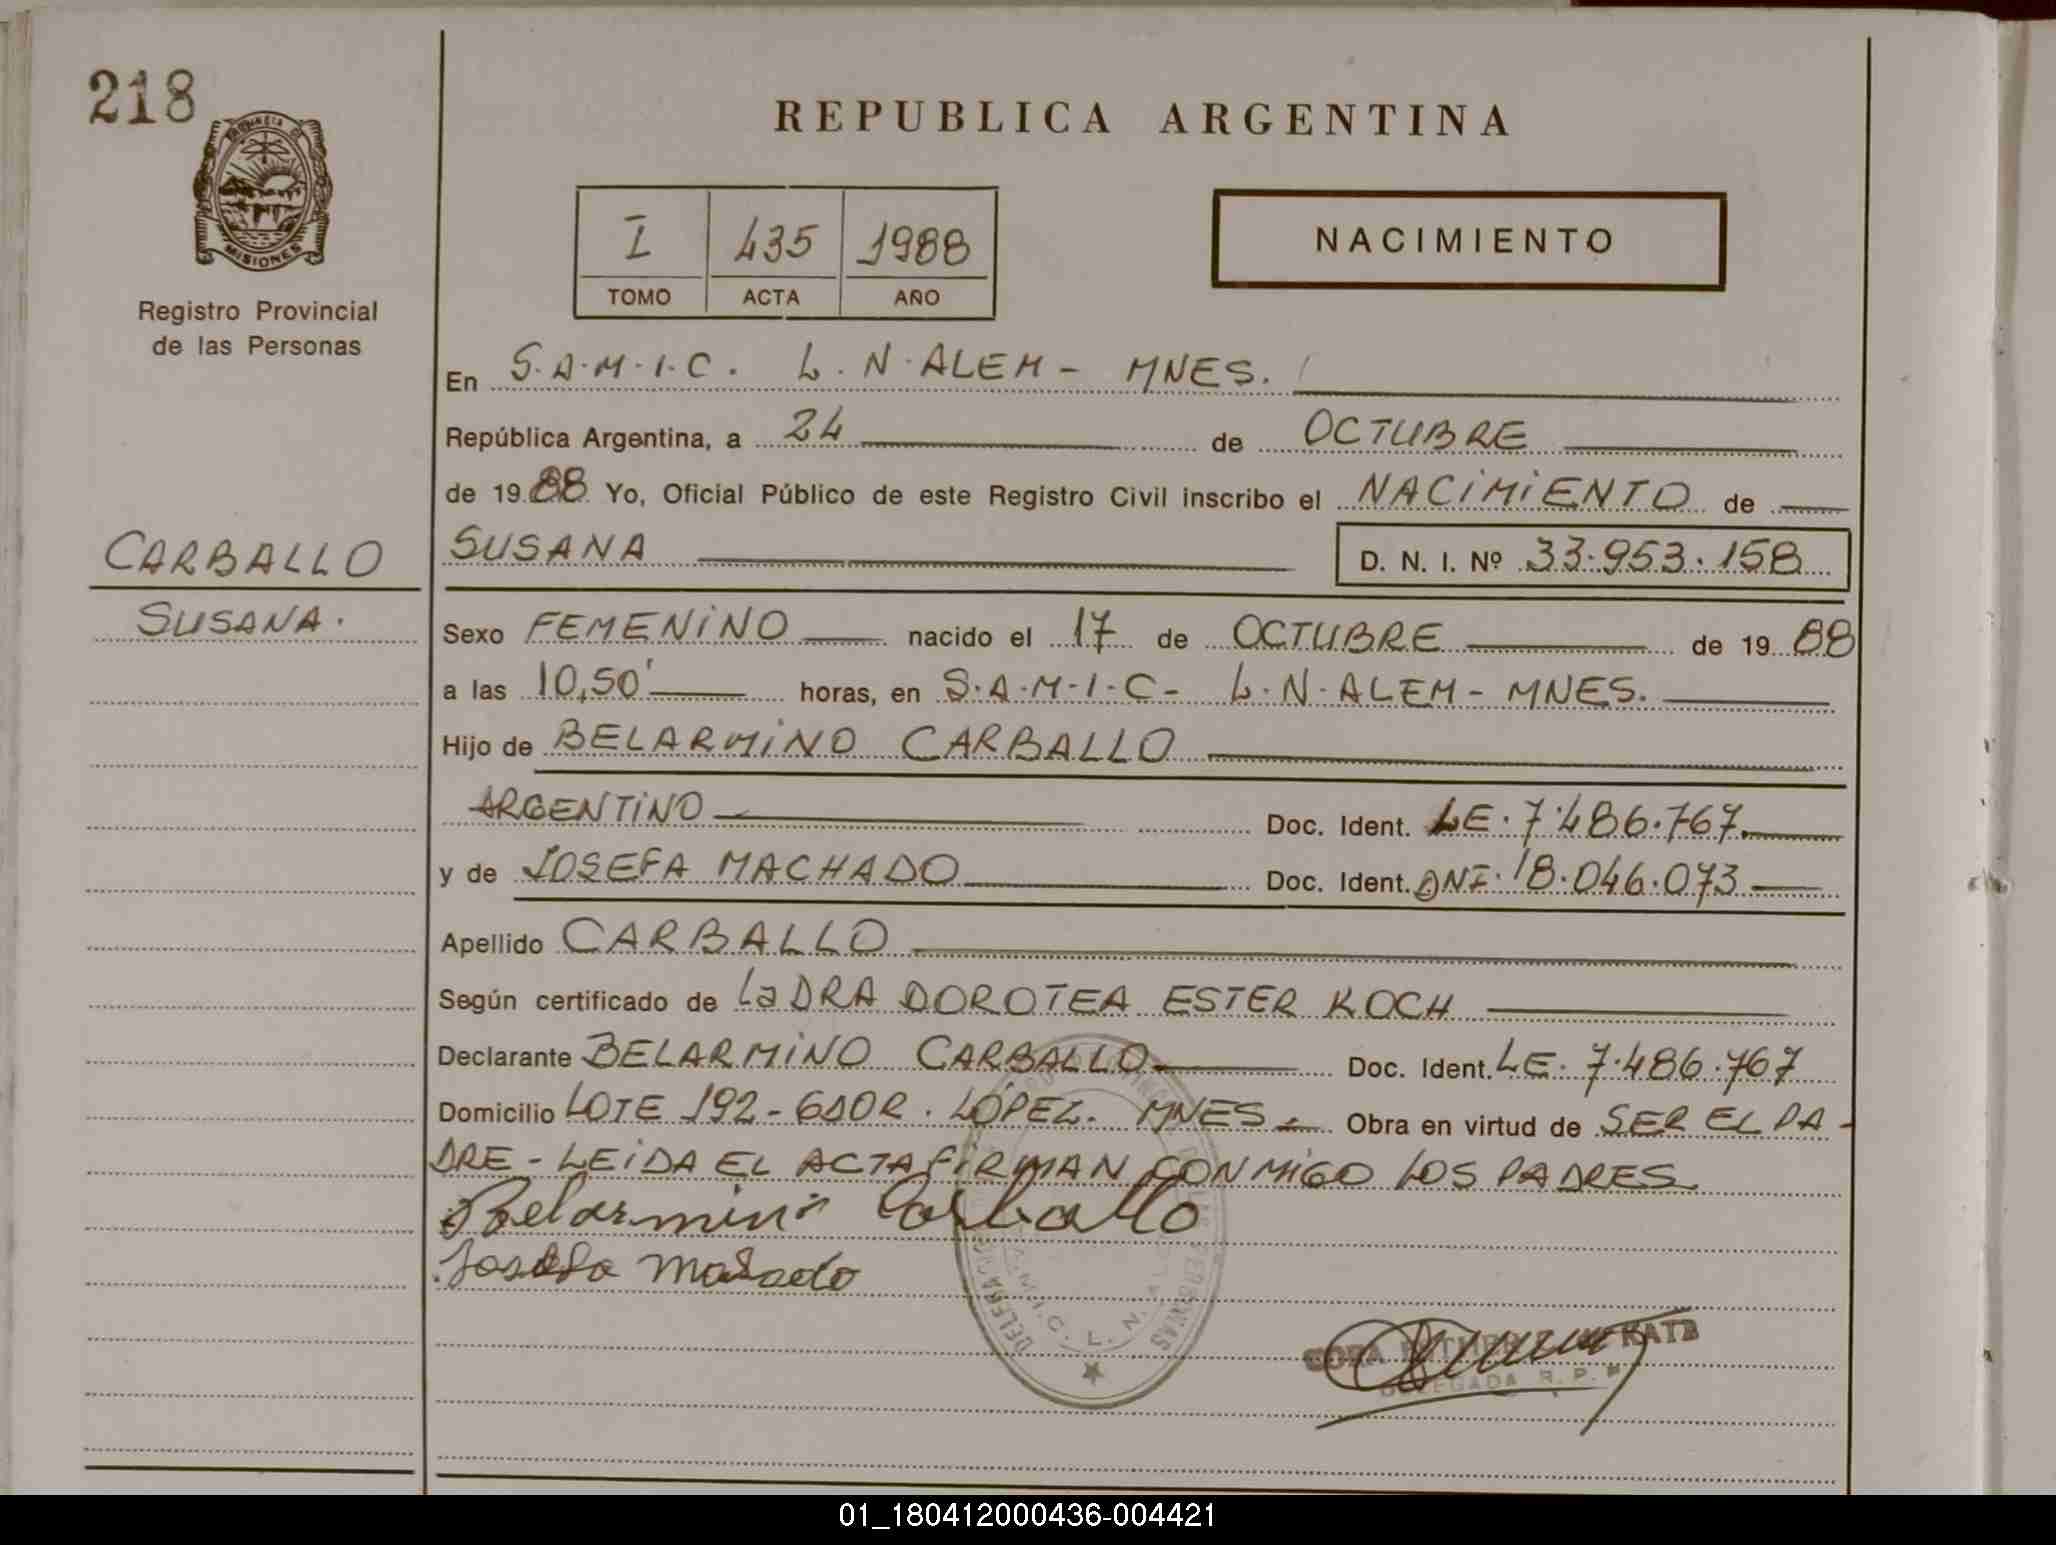 218
PROVINCIA DE
MISIONES
Registro Provincial
de las Personas
REPUBLICA ARGENTINA
I 435 1988
TOMO ACTA AÑO
NACIMIENTO
En S.A.M.I.C. L.N.ALEM- MNES.
República Argentina, a 24 de OCTUBRE
de 1988 Yo, Oficial Público de este Registro Civil inscribo el NACIMIENTO de
CARBALLO
SUSANA.
SUSANA D. N. I. Nº 33.953.158
Sexo FEMENINO nacido el 17 de OCTUBRE de 1988
a las 10,50' horas, en S.A.M.I.C- L.N.ALEM- MNES.
Hijo de BELARMINO CARBALLO
ARGENTINO Doc. Ident. LE.7.486.767
y de JOSEFA MACHADO Doc. Ident. DNI.18.046.073
Apellido CARBALLO
Según certificado de La DRA DOROTEA ESTER KOCH
Declarante BELARMINO CARBALLO Doc. Ident. LE. 7.486.767
Domicilio LOTE 192- GDOR. LÓPEZ. MNES. Obra en virtud de SER EL PA-
DRE- LEIDA EL ACTA FIRMAN CONMIGO LOS PADRES
Belarmino Carballo
DELEGADA R. P.
01_180412000436-004421